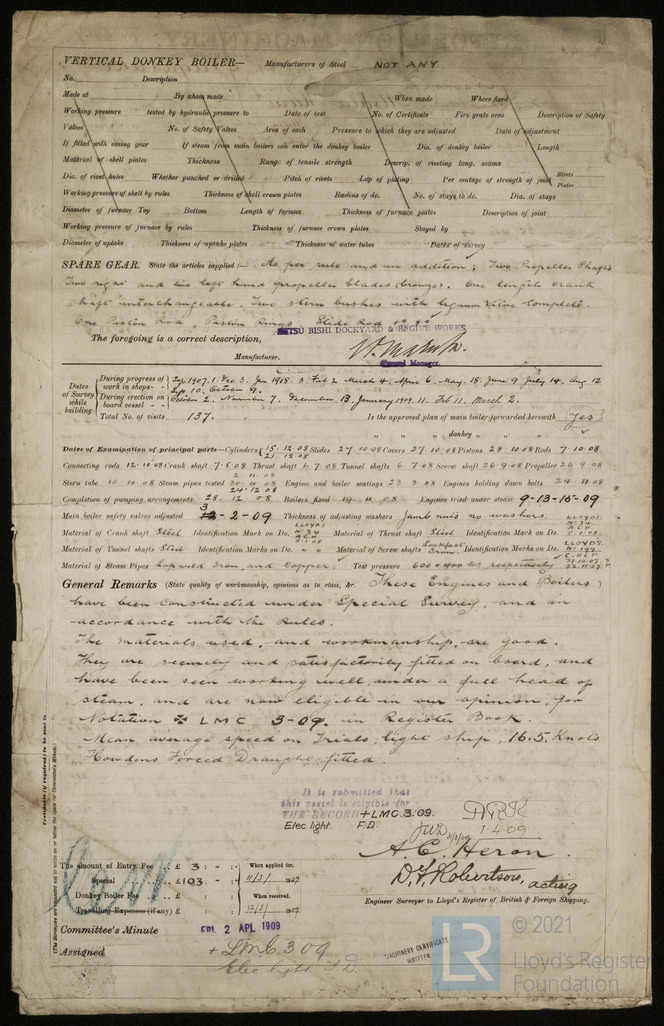 VERTICAL DONKEY BOILER— Manufacturers of Steel NOT ANY
No. Description
Made at By whom made When made Where fixed
Working pressure tested by hydraulic pressure to Date of test No. of Certificate Fire grate area Description of Safety
Valves No. of Safety Valves Area of each Pressure to which they are adjusted Date of adjustment
If fitted with casing gear If steam from main boilers can enter the donkey boiler Dia. of donkey boiler Length
Material of shell plates Thickness Range of tensile strength Descrip. of riveting long. seams
Dia. of rivet holes Whether punched or drilled Pitch of rivets Lap of plating Per centage of strength of joint Rivets Plates
Working pressure of shell by rules Thickness of shell crown plates Radius of do. No. of stays to do. Dia. of stays
Diameter of furnace Top Bottom Length of furnace Thickness of furnace plates Description of joint
Working pressure of furnace by rules Thickness of furnace crown plates Stayed by
Diameter of uptake Thickness of uptake plates Thickness of water tubes Dates of survey
SPARE GEAR. State the articles supplied:— As per rule and in addition; Two Propeller Shafts
Two right and two left hand propeller blades (bronze). One length crank
shaft interchangeable. Two stern bushes with lignum vitae complete.
One Piston Rod, Piston Rings, Slide Rod
The foregoing is a correct description,
MITSU BISHI DOCKYARD & ENGINE WORKS
Manufacturer. General Manager.
Dates of Survey while building
During progress of work in shops-- Sep 1907. 1. Dec 3. Jan 1908. 3. Feb 2 March 4. April 6. May. 18 June 9 July 14. Aug 12
Sep. 10. October 9.
During erection on board vessel--- October 2. November 7. December 13. January 1909. 11. Feb 11. March 2.
Total No. of visits 137. Is the approved plan of main boiler forwarded herewith Yes
" " " donkey " " "
Dates of Examination of principal parts—Cylinders 15.12.08 21.12.08 Slides 27.10.08 Covers 27.10.08 Pistons 28.10.08 Rods 7.10.08
Connecting rods 12.10.08 Crank shaft 7.5.08 Thrust shaft 1.7.08 Tunnel shafts 6.7.08 Screw shaft 26.9.08 Propeller 26.9.08
Stern tube 10.10.08 Steam pipes tested 30.11.08 24.12.08 Engine and boiler seatings 23.3.08 Engines holding down bolts 24.11.08
Completion of pumping arrangements 28.12.08 Boilers fixed 19.11.08 Engines tried under steam 9-13-15-09
Main boiler safety valves adjusted 3-2-09 Thickness of adjusting washers Jamb nuts no washers.
Material of Crank shaft Steel Identification Mark on Do. LLOYD'S No 34 A C H Material of Thrust shaft Steel Identification Mark on Do. LLOYDS No 34 A C H
Material of Tunnel shafts Steel Identification Marks on Do. " " Material of Screw shafts Identification Marks on Do. LLOYD'S
Material of Steam Pipes Lap weld Iron, and copper. Test pressure 600 & 400 lbs respectively
General Remarks (State quality of workmanship, opinions as to class, &c. These Engines and Boilers
have been constructed under Special Survey, and in
accordance with the Rules.
The materials used, and workmanship, are good.
They are securely and satisfactorily fitted on board, and
have been seen working well, under a full head of
steam, and are now eligible in our opinion, for
Notation ✠ LMC 3-09. in Register Book.
Mean average speed on Trials, light ship, 16.5. Knots
Howdens Forced Draught fitted.
It is submitted that
this vessel is eligible for
THE RECORD + LMC 3.09.
Elec light F.D.
1.4.09
A. C. Heron.
D. F. Robertson, acting
Engineer Surveyor to Lloyd's Register of British & Foreign Shipping.
The amount of Entry Fee .. £ 3 : - : - When applied for,
Special .. £ 103 : - : - 11/3/1909
Donkey Boiler Fee .. £ : : When received,
Travelling Expenses (if any) £ : : 12/3/1909
Committee's Minute FRI. 2 APL 1909
Assigned + LMC 3.09
Elec light F.D.
MACHINERY CERTIFICATE
WRITTEN
© 2021
LR
Lloyd's Register
Foundation